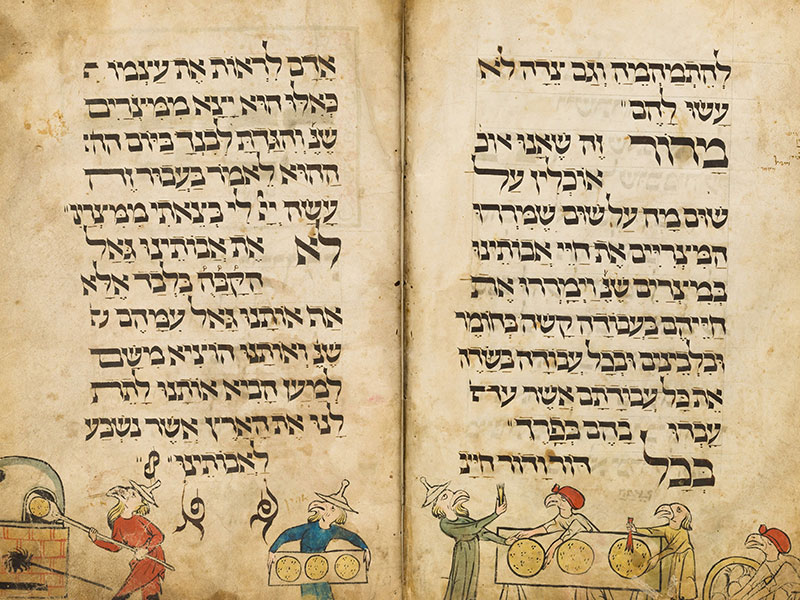 להתמהמה וגם צדה לא
עשו להם
מרור זה שאנו אוכ
אוכלין על
שום מה על שום שמררו
המצריים את חיי אבותינו
במצרים שנ׳ וימררו את
חייהם בעבודה קשה בחומר
ובלבינים ובכל עבודה בשדה
את כל עבודתם אשר
עבדו בהם בפרך
בכל דור ודור חייב
אדם לראות את עצמו
כאלו הוא יצא ממצרים
שנ׳ והגדת לבנך ביום הה
ההוא לאמר בעבור זה
עשה ייי לי בצאתי ממצרים
לא את אבותינו גאל
הקבה בלבד אלא
אף אותנו גאל עמהם
שנ׳ ואותנו הוציא משם
למען הביא אותנו לתת
לנו את הארץ אשר נשבע
לאבותינו